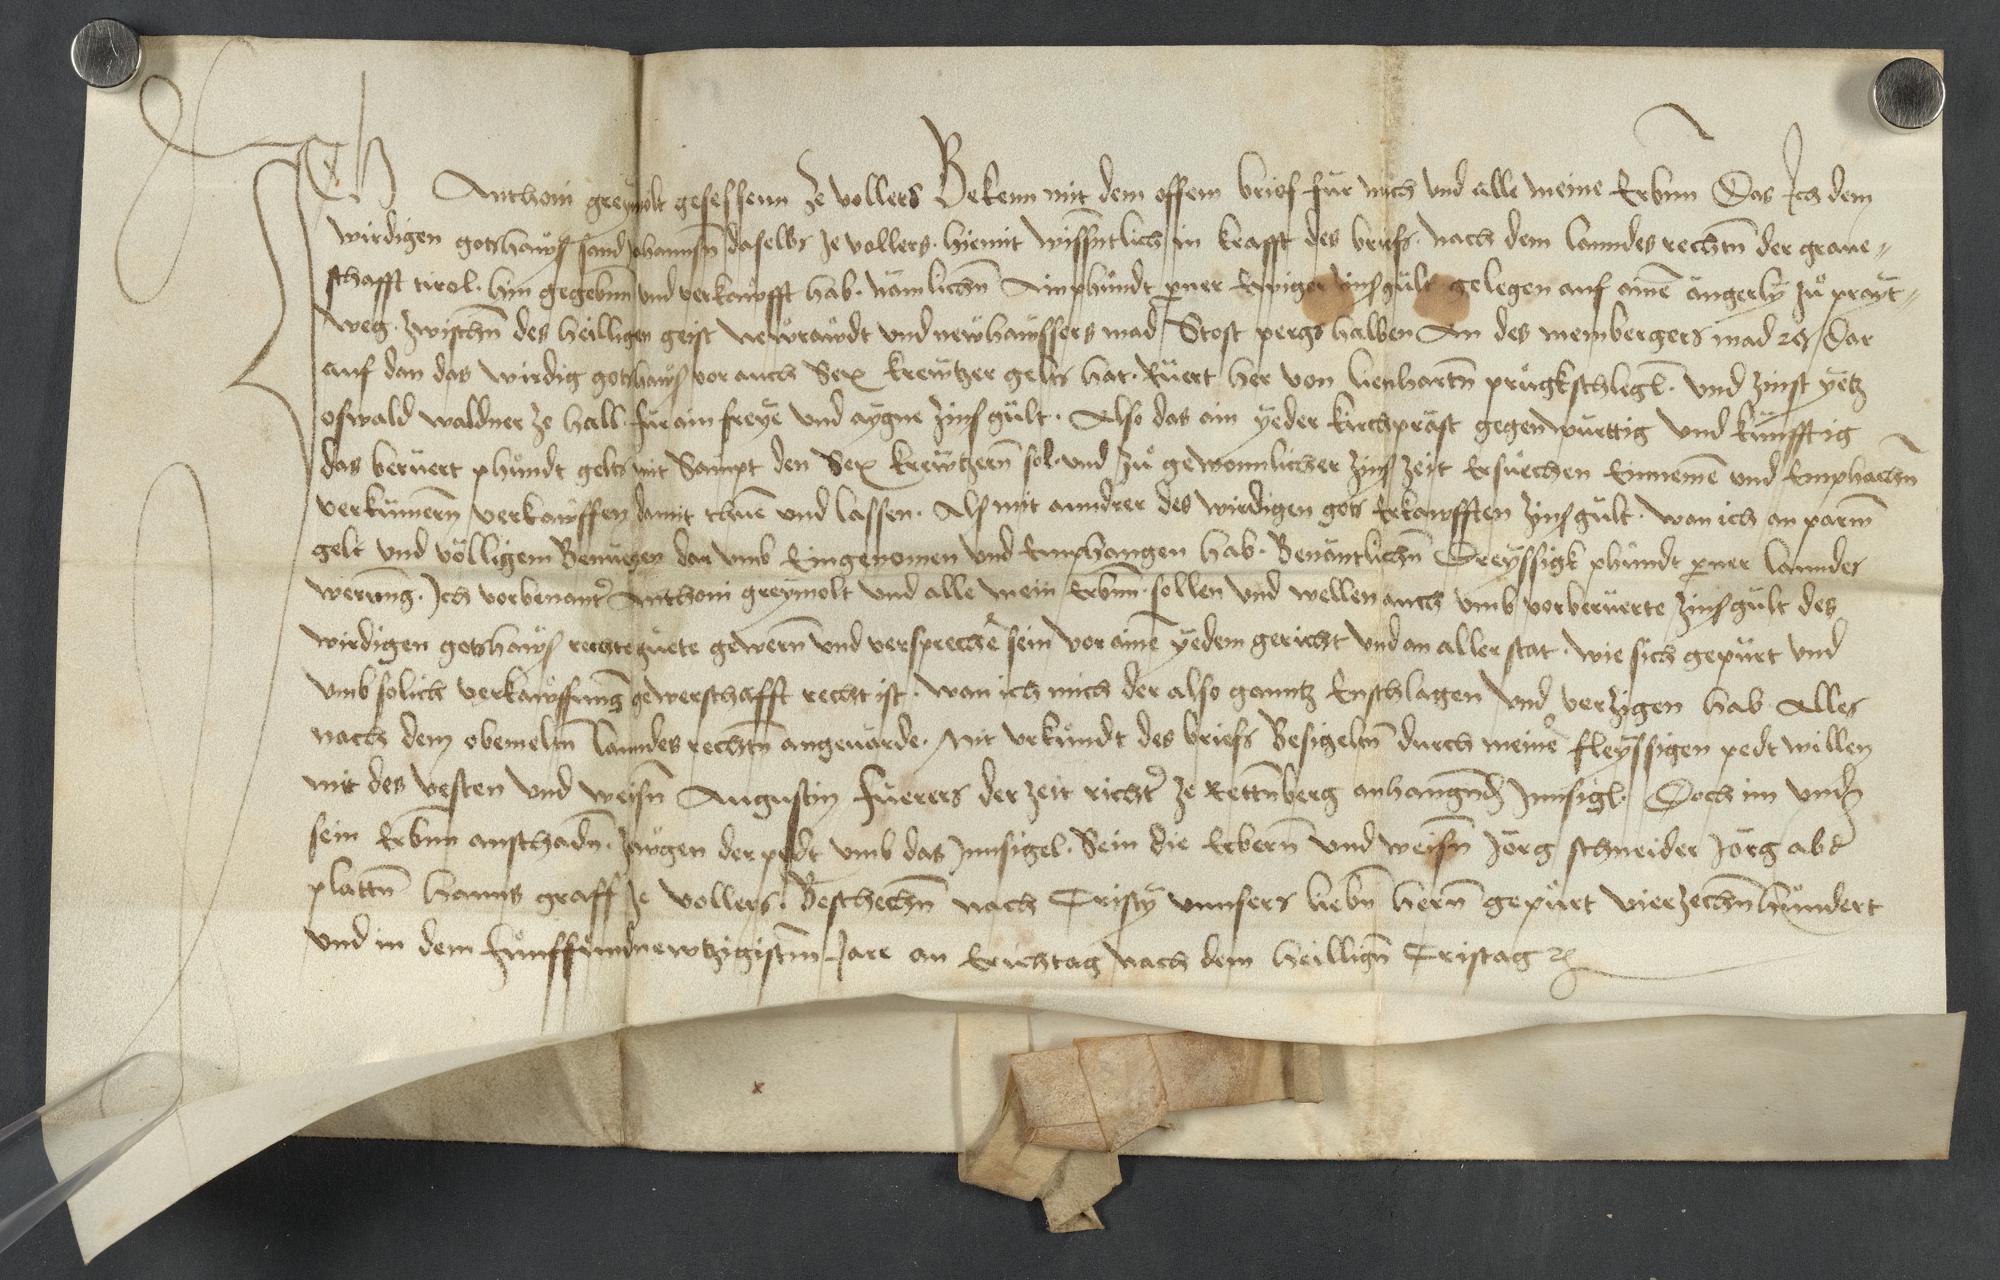 Ich Anthoni greymolt gesessenn ze vollers Bekenn mit dem offem brief fur mich und alle meine Erbnn Das Ich dem
wirdigen gotzhawß sand Johannsn daselbs ze vollers. hiemit wissntlich in krafft des briefs. nach dem lanndes rechtn der graue„
schafft tirol. hin gegebnn und verkawfft hab. nämlichn Ain phündt perner Ewiger zinsgült gelegen auf ainē ängerly zů prayt„
weg. zwischn des heilligen geist newrawdt und newhawssers mad Stost pergs halben An des membergers mad ꝛc dar
auf dan das wirdig gotzhawß vor auch Sex krewtzer gelts hat. Rüert her von lienhartn prugkschlegl. und zinst yetz
oswald waldner ze hall. für ain freye und aygne zinsgült. Also das ain yeder kirchpräst gegenwürttig und künfftig
das berüert phündt gelts mit Sampt den Sex krewtzern sol. und zů gewonnlicher zinß zeit Ersuechen Einnemē und Emphachn
verkümern verkawffen damit thuē und lassen. Als mit anndrer des wirdigen gots Erkawfften zinsgült. wan ich an parm
gelt und völligem Benuegen dar umb Eingenomen und Emphangen hab. Benäntlichn Dreyssigk phündt perner lanndes
werung. Ich vorbenantr Anthoni greymolt und alle mein Erbnn. sollen und wellen auch umb vorberüerte zinsgült des
wirdigen gotzhawß rechte guete gewern und versprechē sein vor ainē yedem gericht und an aller stat. wie sich gepürt und
umb solich verkawffung gewerschafft recht ist. wan ich mich der also ganntz Enschlagen und verzigen hab Alles
nach dem obemeltn lanndes rechtn angeuärde. Mit urkündt des briefs Besigeltn durch meinr fleyssigen pedt willen
mit des vesten und weisn Augustin füerers der zeit richtr ze Rettnberg anhangndn Innsigl. Doch im und
sein Erbnn anschadn. zewgen der pedt umb das Innsigel. Sein die Erbern und weisn Jörg schneider Jörg abr
plattn hanns graff ze vollers. Beschechn nach Cristy unnsers liebn hern gepurt vierzechnhündert
und in dem fünffundnewtzigistnn Jare an Erichtag nach dem heillign Cristag ꝛc